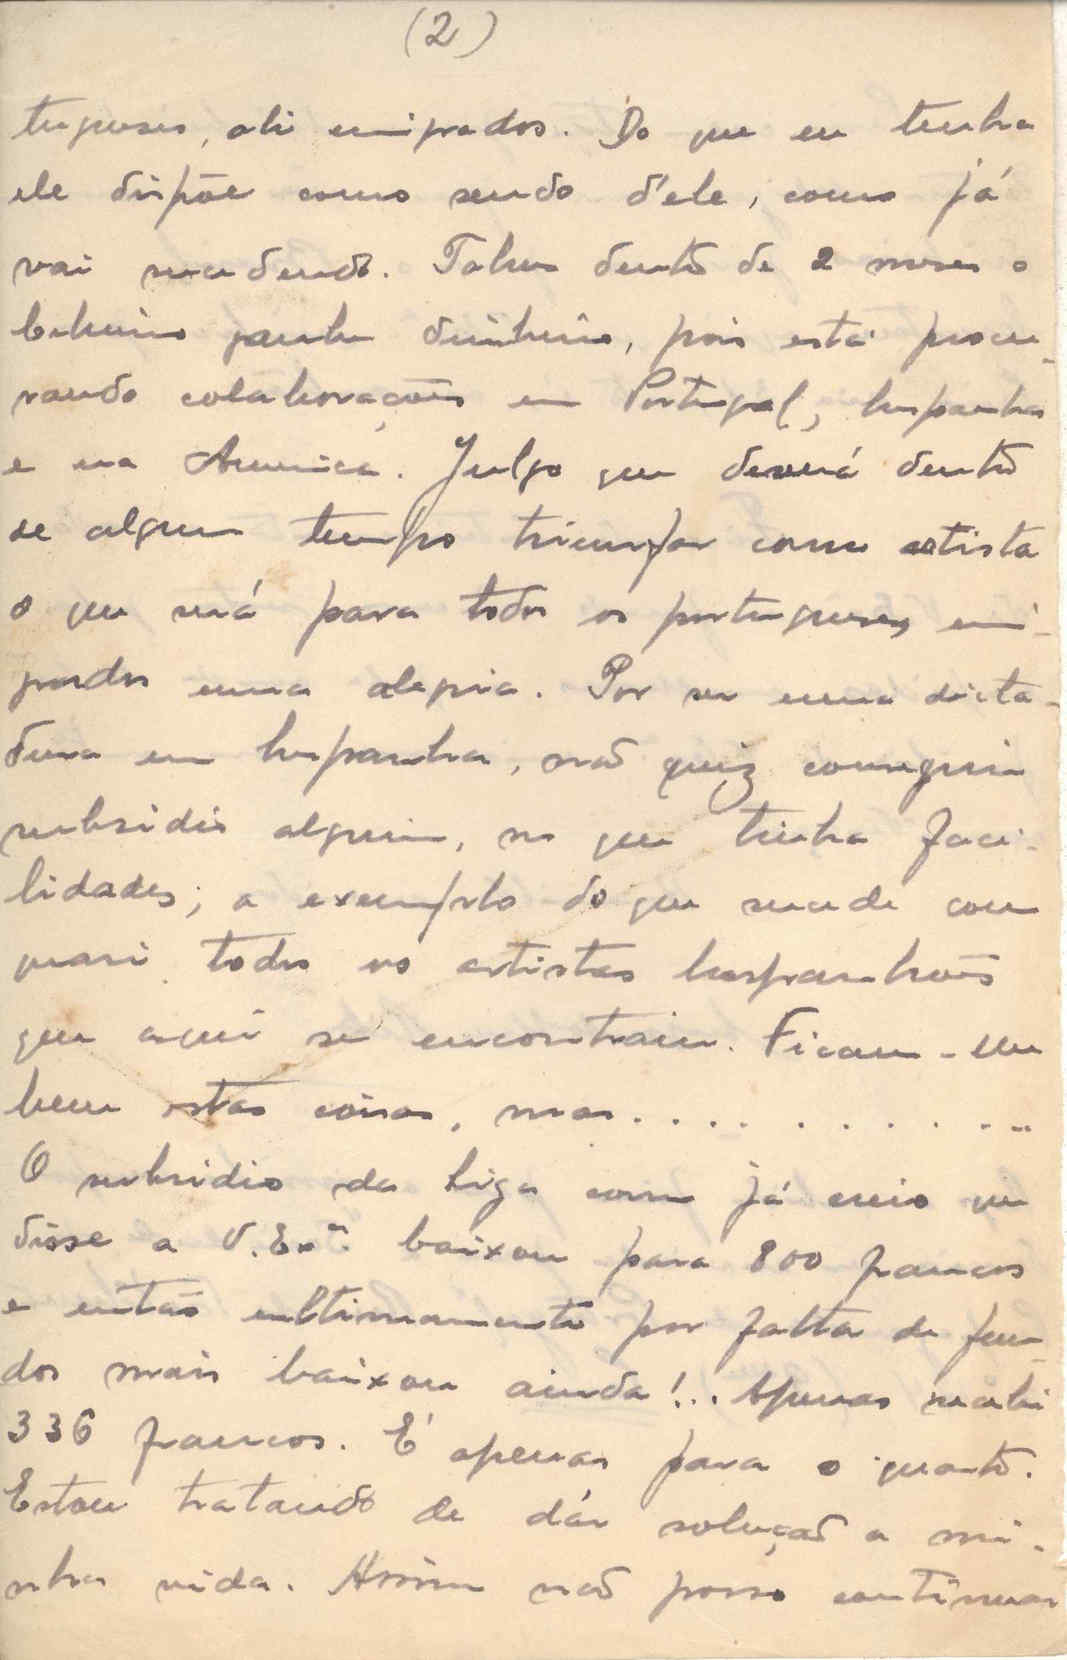 (2)
tugueses, ali emigrados. Do que eu tenha
ele dispõe como sendo d'ele, como já
vai sucedendo. Talvez dentro de 2 meses o
ganhe dinheiro, pois está procu-
rando colaborações em Portugal, Hespanha
e na America. Julgo que deverá dentro
de algum tempo triumfar como artista
o que será para todos os portugueses emi-
grados uma alegria. Por ser uma dicta-
dura em Hespanha, não quiz conseguir
subsidio algum, no que tinha faci-
lidades; a exemplo do que sucede com
quasi todos os artistas hespanhoes
que aqui se encontram. Ficam-me
bem estas coisas, mas...........
O subsidio da Liga como já creio que
disse a V. Exª. baixou para 800 francos
e então ultimamente por falta de fun-
dos mais baixou ainda!.. Apenas recebi
336 francos. É apenas para o quarto.
Estou tratando de dár solução a mi-
nha vida. Assim não posso continuar